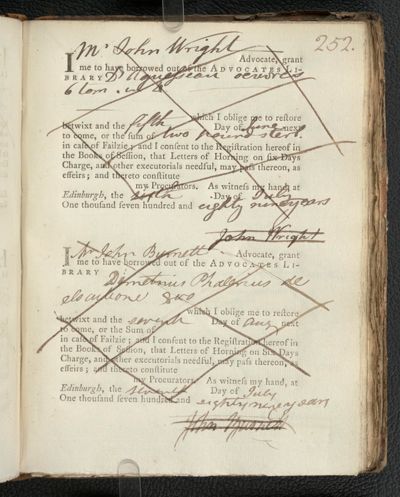 252.
I Mr John Wright Advocate, grant
me to have borrowed out of the ADVOCATES LI-
BRARY D'Aguesseau oeuvres
6 tom.
which I oblige me to restore
betwixt and the fifth Day of June next
to come, or the sum of two pound sterl.
in case of Failzie; and I consent to the Registration hereof in
the Books of Session, that Letters of Horning on six Days
Charge, and other executorials needful, may pass thereon, as
effeirs; and thereto constitute
my Procurators. As witness my hand at
Edinburgh, the sixth Day of July
One thousand seven hundred and eighty nine years
John Wright
I Mr John Burnett Advocate, grant
me to have borrowed out of the ADVOCATES LI-
BRARY Demetrius Phalerius de
elocutione 8vo
which I oblige me to restore
betwixt and the seventh Day of Aug next
to come, or the Sum of
in case of Failzie; and I consent to the Registration hereof in
the Books of Session, that Letters of Horning on Six Days
Charge, and other executorials needful, may pass thereon, as
effeirs; and thereto constitute
my Procurators. As witness my hand, at
Edinburgh, the seventh Day of July
One thousand seven hundred and eighty nine years
John Burnett